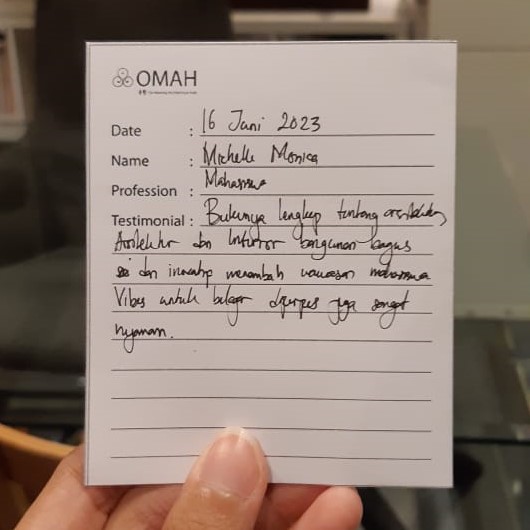 OMAH
Date : 16 Juni 2023
Name : Michelle Monica
Profession : Mahasiswa
Testimonial : Bukunya lengkap tentang
Arsitektur dan Interior bangunan bagus
dan menambah wawasan mahasiswa
Vibes untuk belajar juga sangat
nyaman.